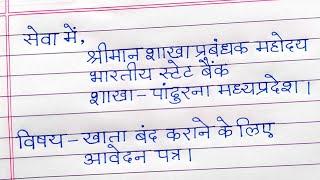 सेवा में,
श्रीमान शाखा प्रबंधक महोदय
भारतीय स्टेट बैंक
शाखा - पांदुरना मध्यप्रदेश।
विषय - खाता बंद कराने के लिए
आवेदन पत्र।